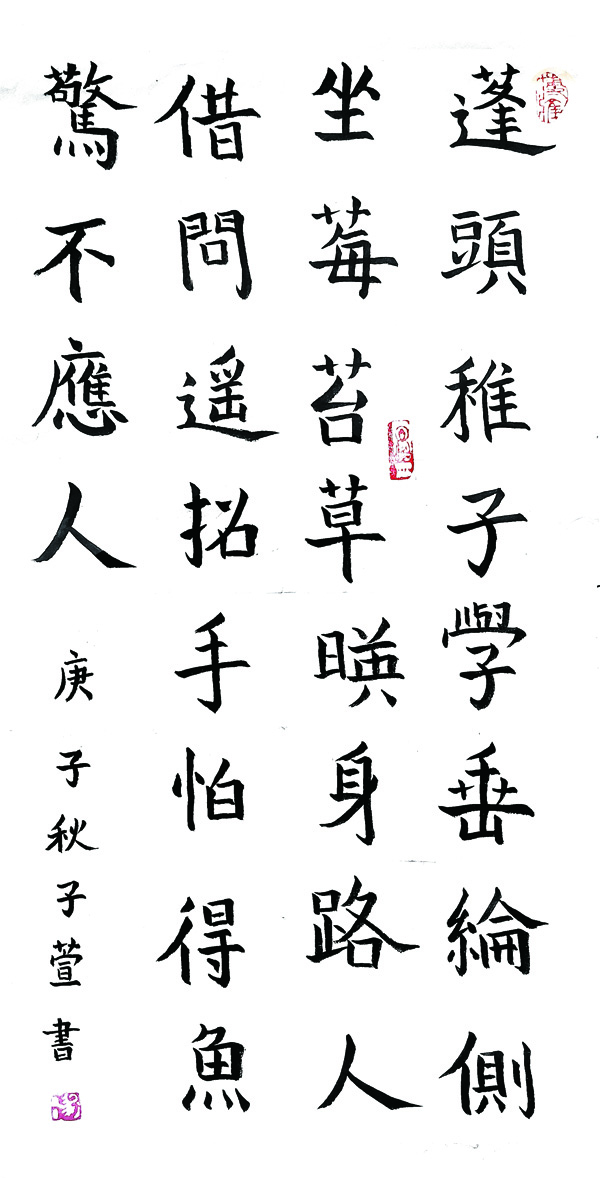 蓬頭稚子學垂綸側
坐莓苔草暎身路人
借問遥招手怕得魚
驚不應人
庚子秋子萱書